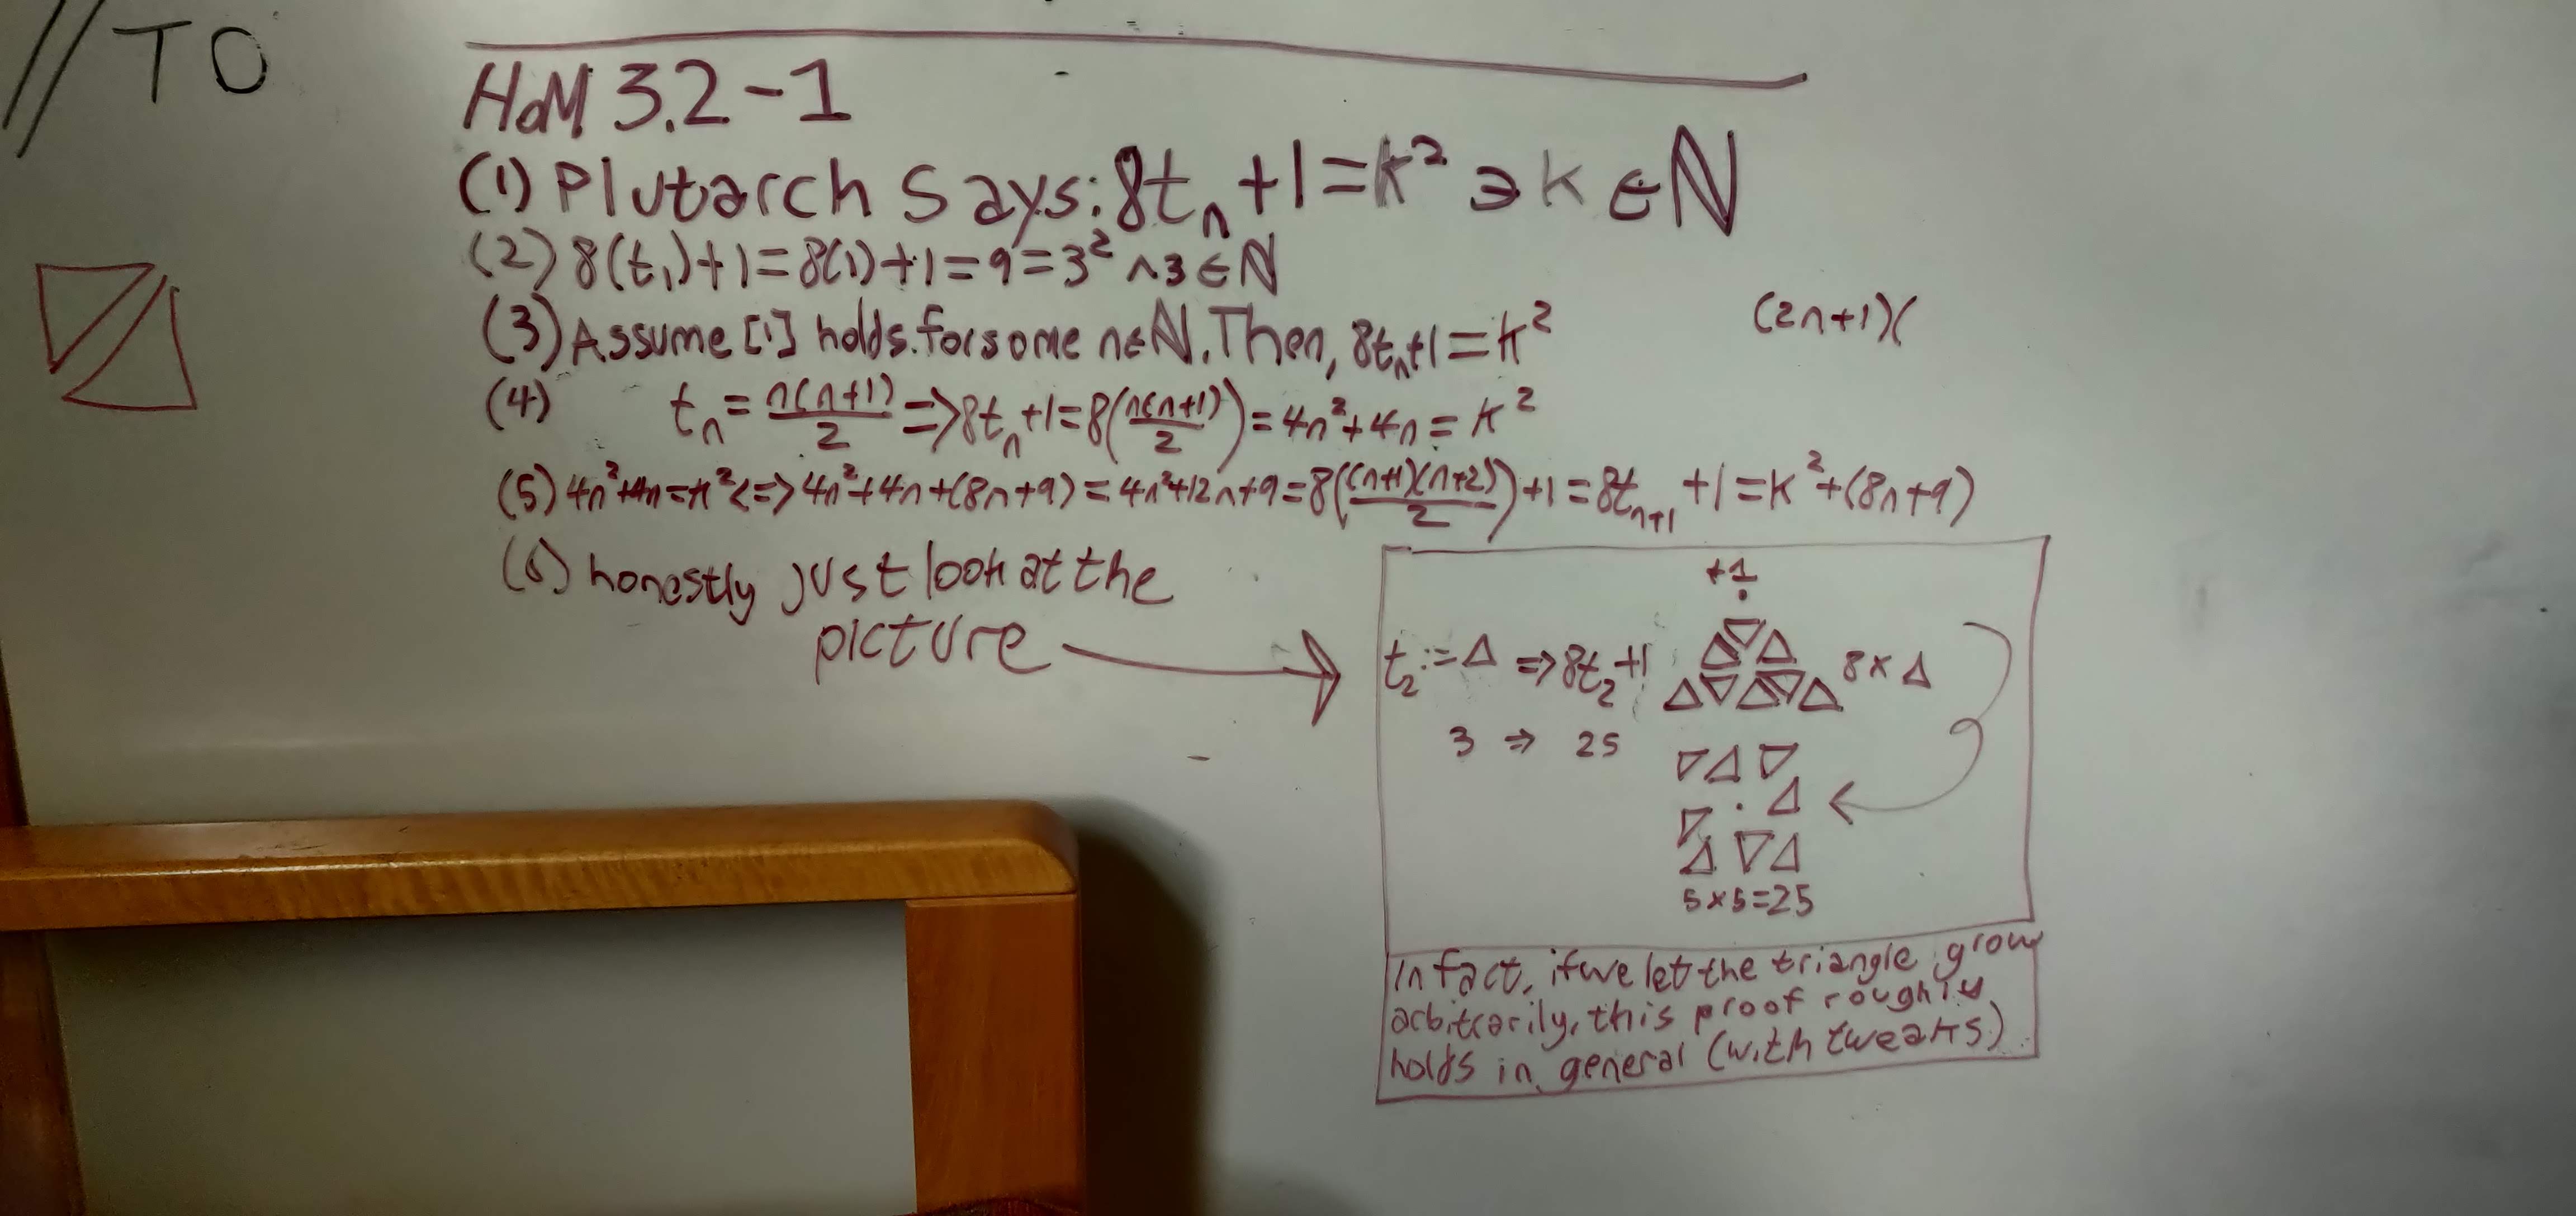 // TO
HoM 3.2-1
(1) Plutarch says: 8tₙ+1=k² ∋ k ∈ ℕ
(2) 8(t₁)+1=8(1)+1=9=3² ∧3∈ℕ
(3) Assume [1] holds for some n∈ℕ. Then, 8tₙ+1=k²
(2n+1)(
(4) tₙ = n(n+1)/2 => 8tₙ+1=8(n(n+1)/2)=4n²+4n=k²
(5) 4n²+4n=k²<=>4n²+4n+(8n+9)=4n²+12n+9=8((n+1)(n+2)/2)+1=8tₙ₊₁+1=k²+(8n+9)
(6) honestly just look at the
picture
+1
t₂:=Δ =>8t₂+1
8×Δ
3 => 25
5×5=25
In fact, if we let the triangle grow
arbitrarily, this proof roughly
holds in general (with tweaks)